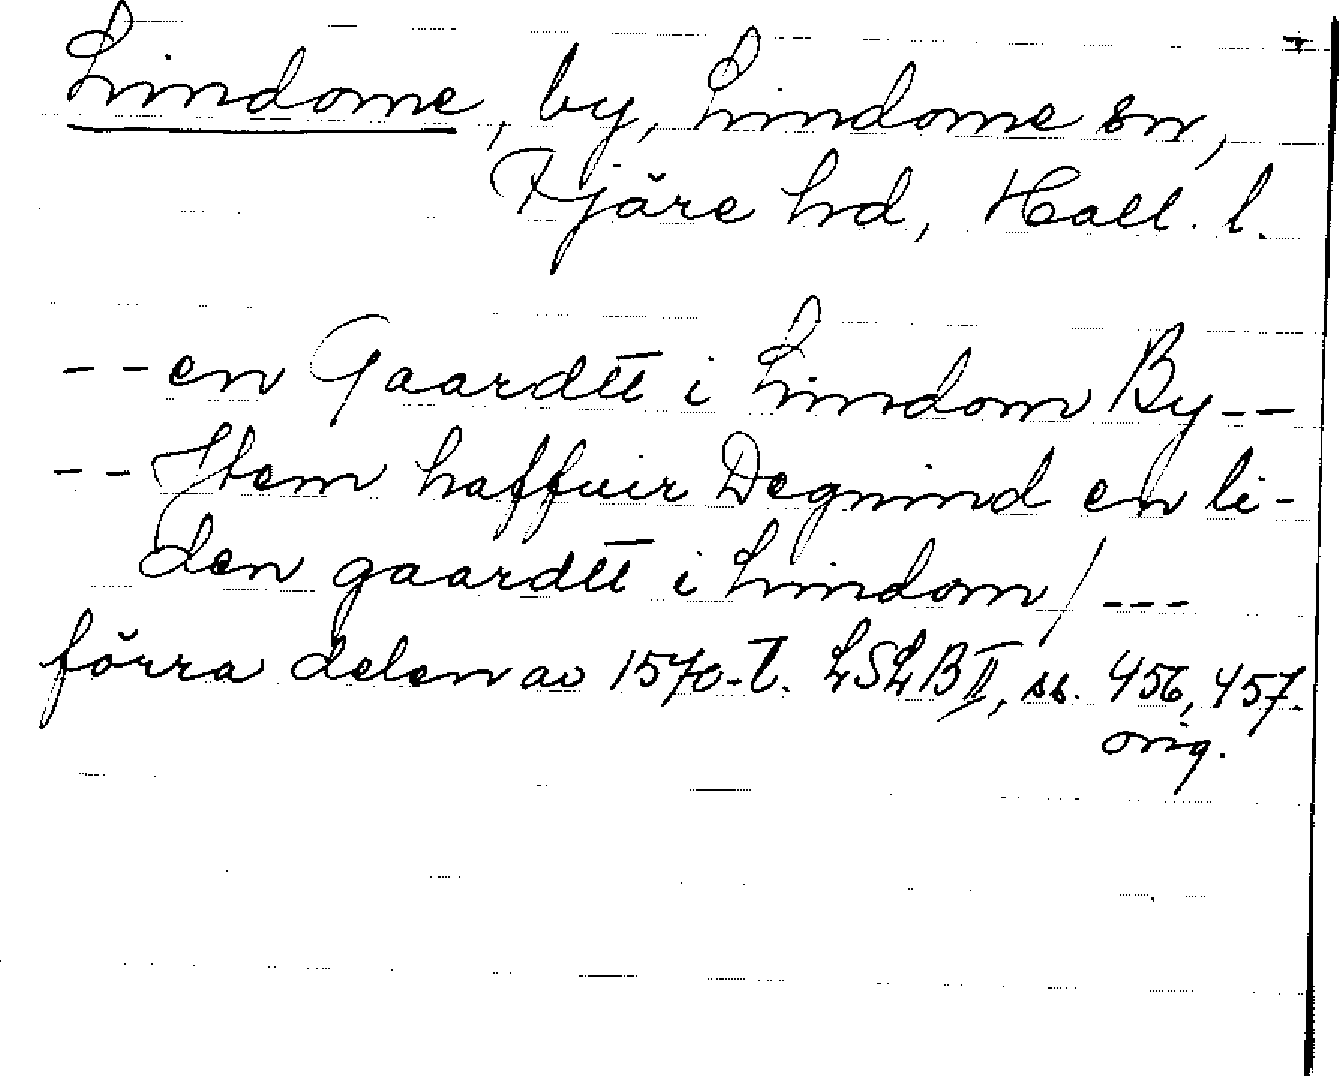 Lindome, by, Lindome sn,
Fjäre hd, Hall. l.
-- en Gaardtt i Lindom By --
-- Jtem haffuir Degnind en li-
den gaardtt i Lindom / ---
förra delen av 1570-t. LSLB II, ss. 456, 457.
orig.